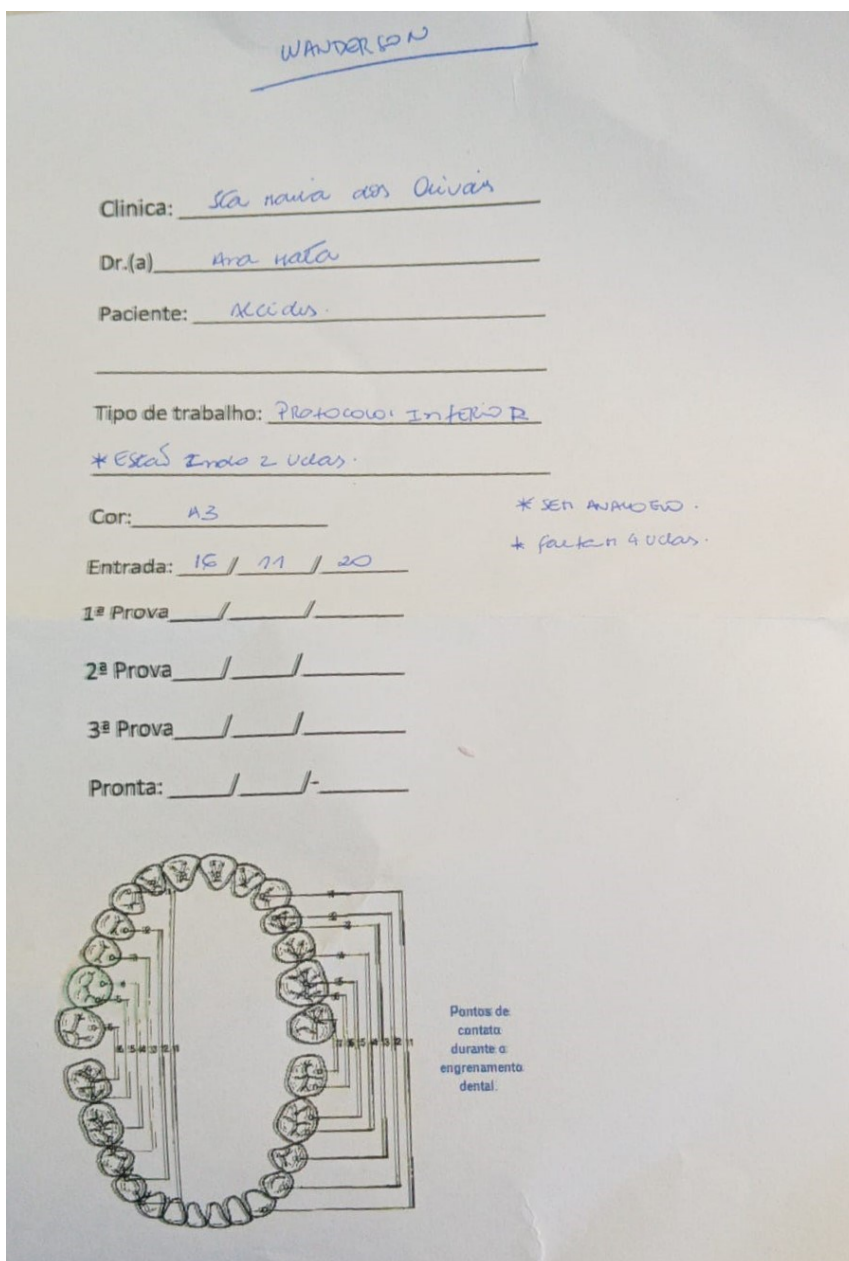 WANDERSON
Clinica: Sta maria dos Olivais
Dr.(a) Ana Mata
Paciente: Alcides.
Tipo de trabalho: PROTOCOLO: INFERIOR
* Estão Indo 2 Udas.
Cor: A3
* SEM ANALOGO.
Entrada: 16 / 11 / 20
* faltam 4 Udas.
1ª Prova / /
2ª Prova / /
3ª Prova / /
Pronta: / /-
Pontos de
contato
durante o
engrenamento
dental.